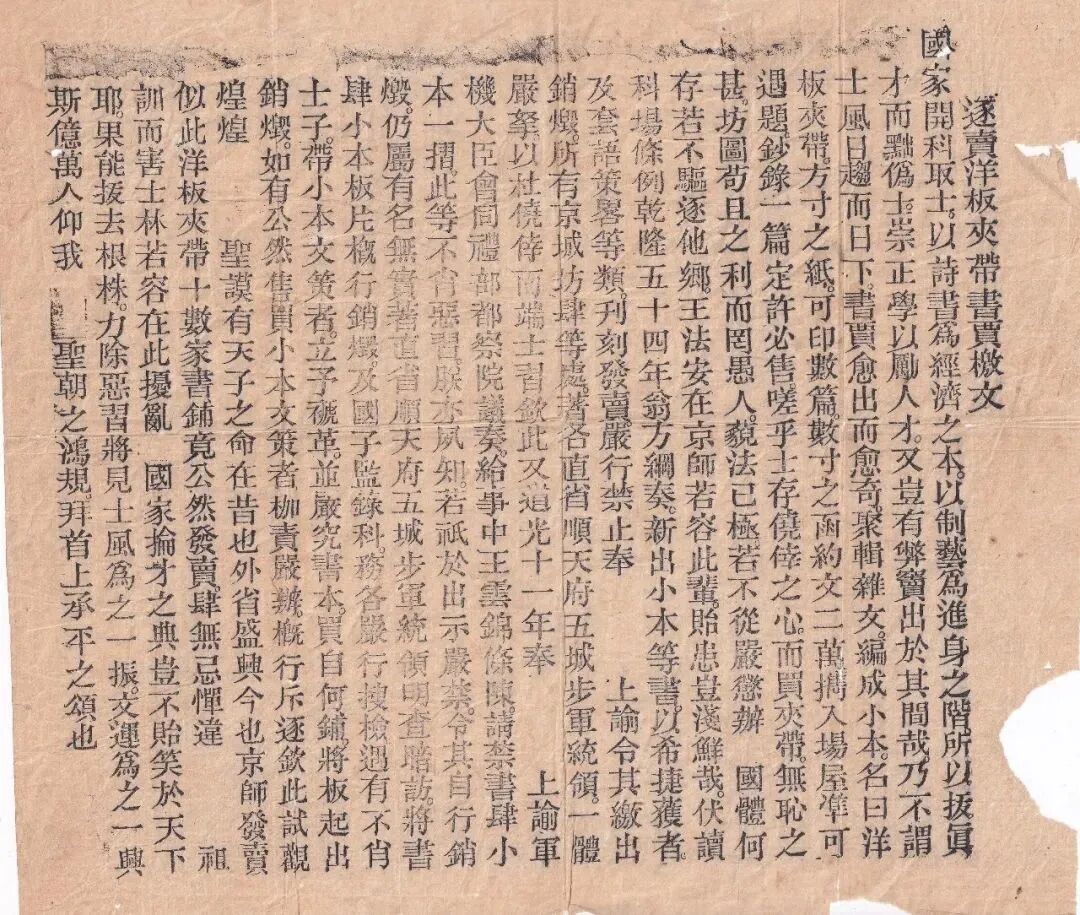 逐賣洋板夾帶書賈檄文
國家開科取士。以詩書爲經濟之本。以制藝爲進身之階所以拔眞
才而黜僞士。崇正學以勵人才。又豈有弊竇出於其間哉。乃不謂
士風日趨而日下。書賈愈出而愈奇。聚輯雜文。編成小本。名曰洋
板夾帶。方寸之紙。可印數篇。數寸之函約文二萬。攜入場屋準可
遇題。鈔錄一篇定許必售嗟乎士存僥倖之心。而買夾帶。無恥之
甚。坊圖苟且之利而罔愚人。藐法已極若不從嚴懲辦 國體何
存若不驅逐他鄉。王法安在京師若容此輩。貽患豈淺鮮哉。伏讀
科場條例乾隆五十四年翁方綱奏。新出小本等書。以希捷獲者。
及套語策畧等類。刊刻發賣。嚴行禁止奉 上諭令其繳出
銷燬。所有京城坊肆等處。著各直省順天府五城步軍統領。一體
嚴拏以杜僥倖而端士習欽此又道光十一年奉 上諭軍
機大臣會同禮部都察院議奏。給事中王雲錦條陳請禁書肆小
本一摺。此等不肖惡習。朕亦夙知。若祇於出示嚴禁令其自行銷
燬。仍屬有名無實著直省順天府五城步軍統領明查暗訪。將書
肆小本板片槪行銷燬。及國子監錄科。務各嚴行搜檢遇有不肖
士子。帶小本文策者。立予褫革。並嚴究書本。買自何鋪。將板起出
銷燬。如有公然售買小本文策者枷責嚴辦。槪行斥逐欽此試觀
煌煌 聖謨有天子之命在昔也外省盛興今也京師發賣
似此洋板夾帶十數家書鋪竟公然發賣。肆無忌憚違 祖
訓而害士林若容在此擾亂 國家掄才之典豈不貽笑於天下
耶。果能拔去根株。力除惡習將見士風爲之一振。文運爲之一興
斯億萬人仰我 聖朝之鴻規。拜首上承平之頌也